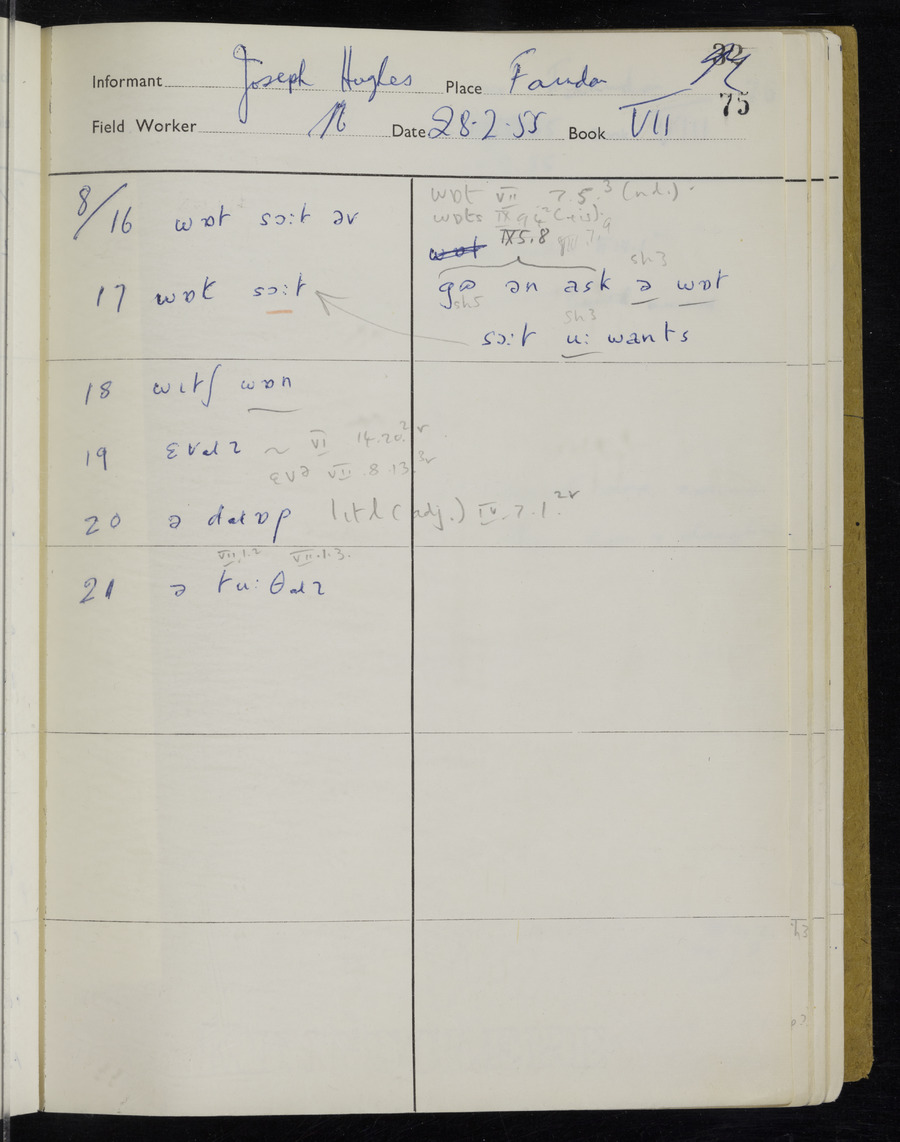 Informant Joseph Hughes Place Farndon
75
Field Worker Date 28.2.55 Book VII
8/16 wɒt sɔ:t əv
17 wɒt sɔ:t
18 wɪtʃ wɒn
19 ɛvəlz ~ VI 14.20
ɛvə VII 8.13
20 ə dɹɒp lɪtl (adj.) IV. 7.1
VII.1.2 VII.1.3.
21 ə tu:θəlz
wɒt VII 7.5.3 (n.d.)
wɒts IX 9
wɒt IX5.8
sh3
gɷ ən ask ə wɒt
sh5
sh3
sɔ:t u: wants